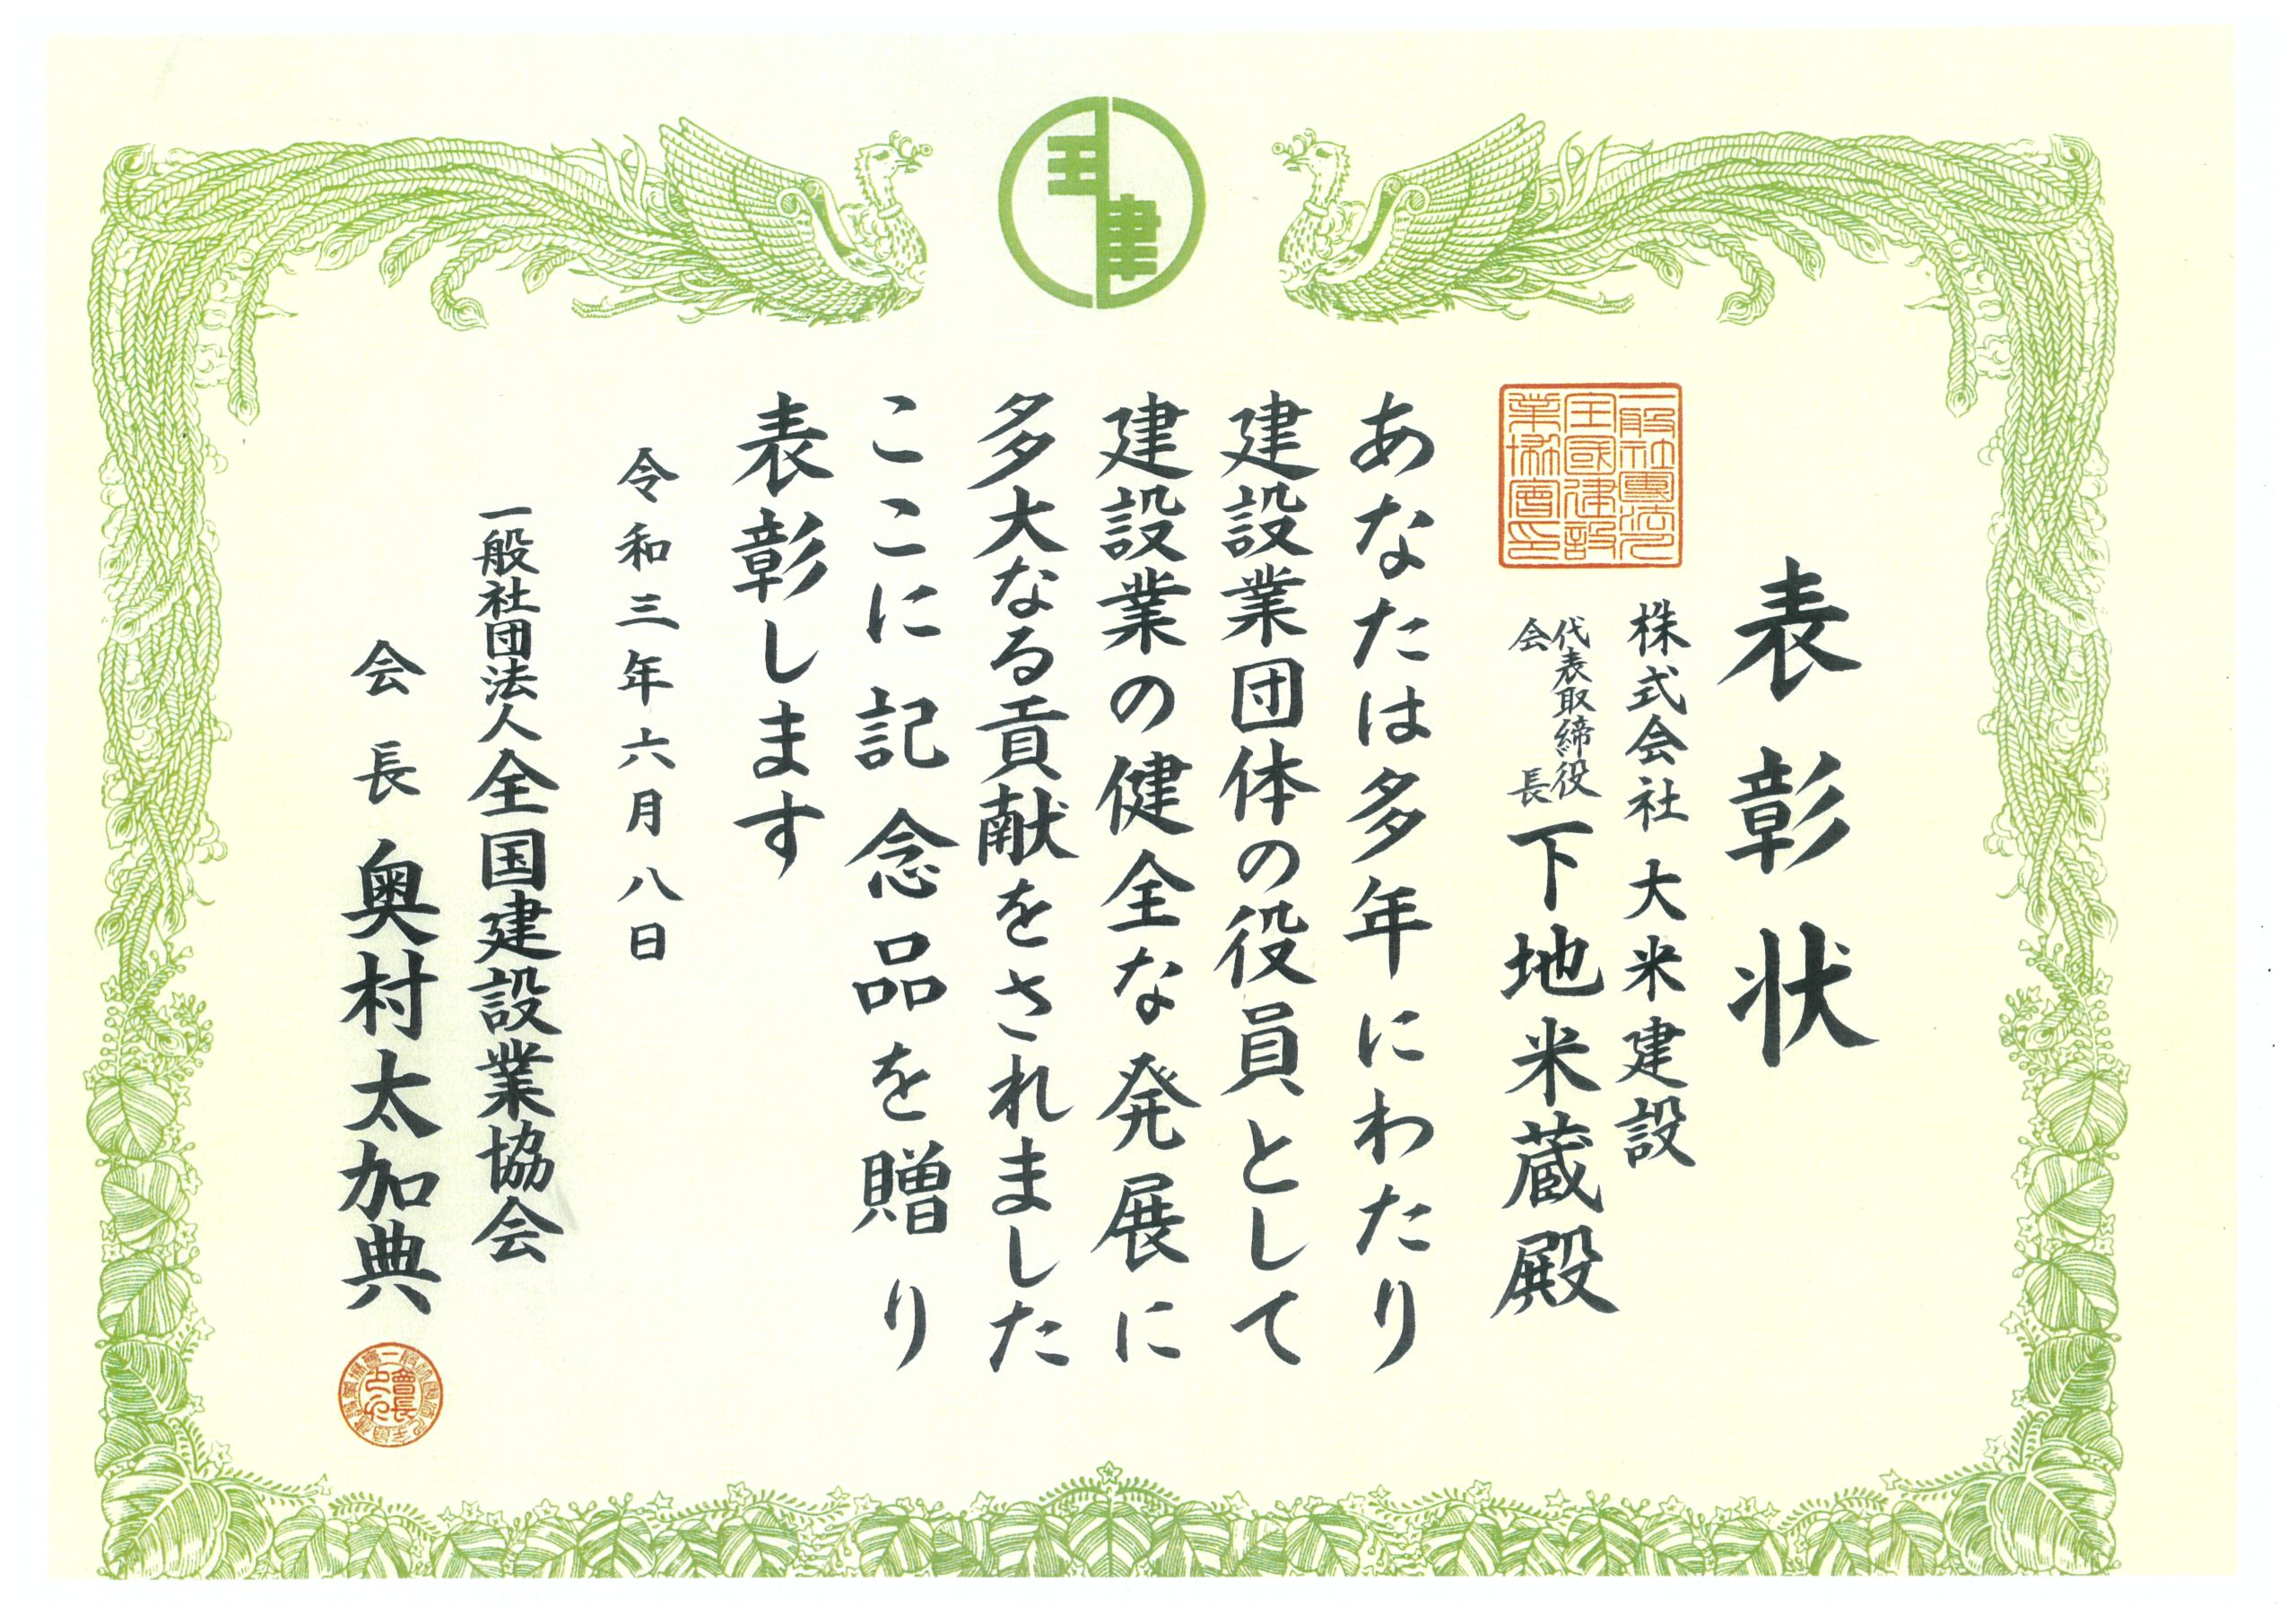 表彰状
株式会社 大米建設
代表取締役
会長
下地米蔵殿
あなたは多年にわたり
建設業団体の役員として
建設業の健全な発展に
多大なる貢献をされました
ここに記念品を贈り
表彰します
令和三年六月八日
一般社団法人全国建設業協会
会長 奥村太加典
一般社團法人
全國建設
業協會印